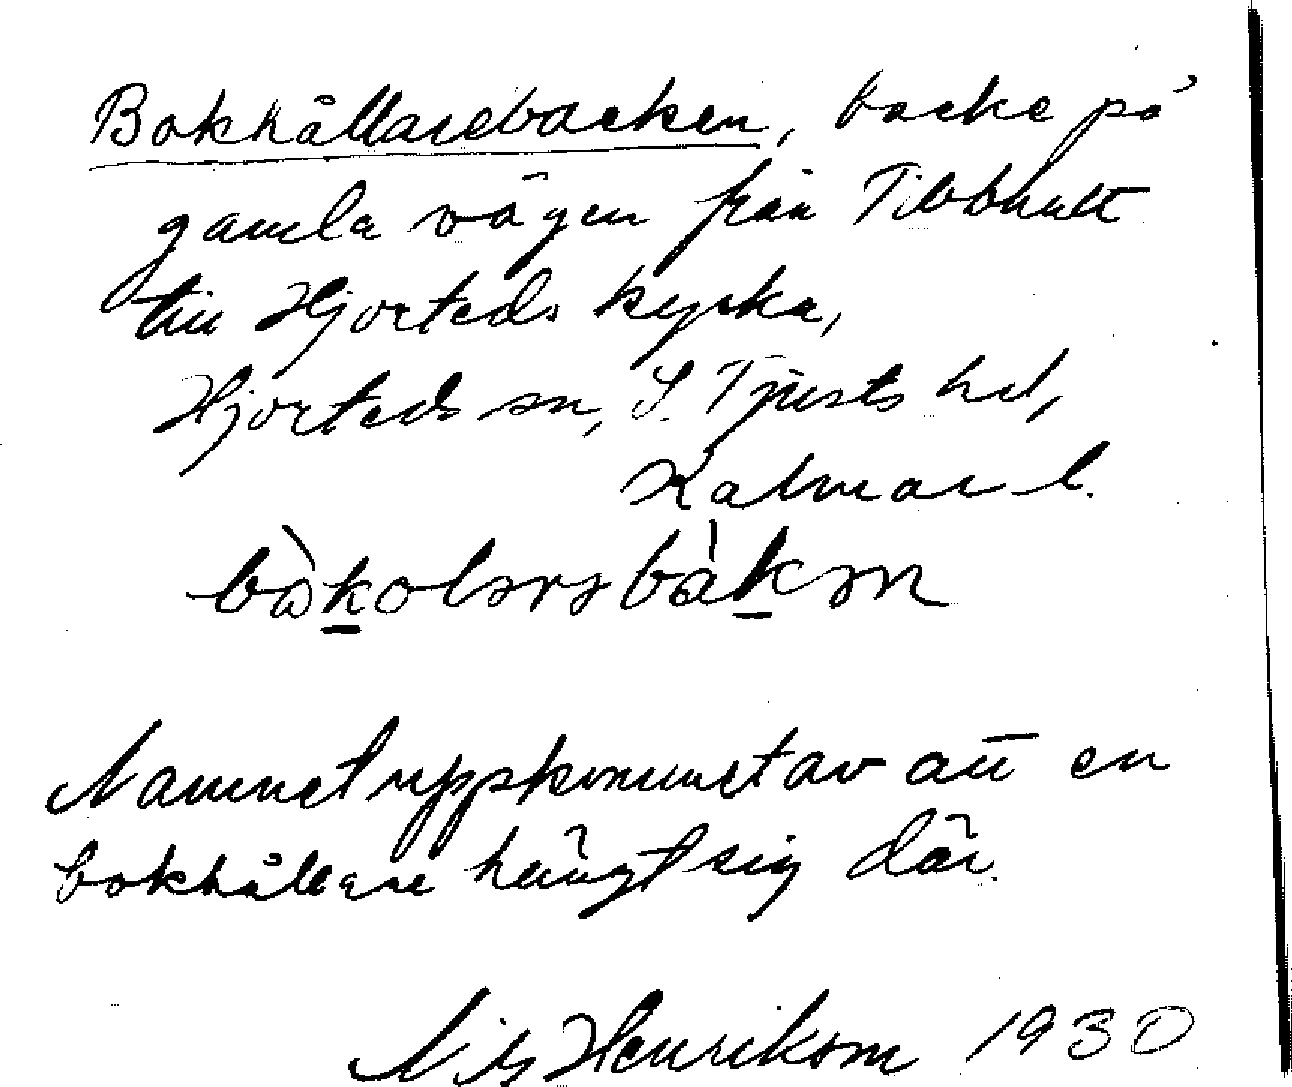 Bokhållarebacken, backe på
gamla vägen från Tibbhult
till Hjorteds kyrka,
Hjorteds sn, S. Tjusts hd,
Kalmar l.
Namnet uppkommet av att en
bokhållare hängt sig där.
Nils Henrikson 1930